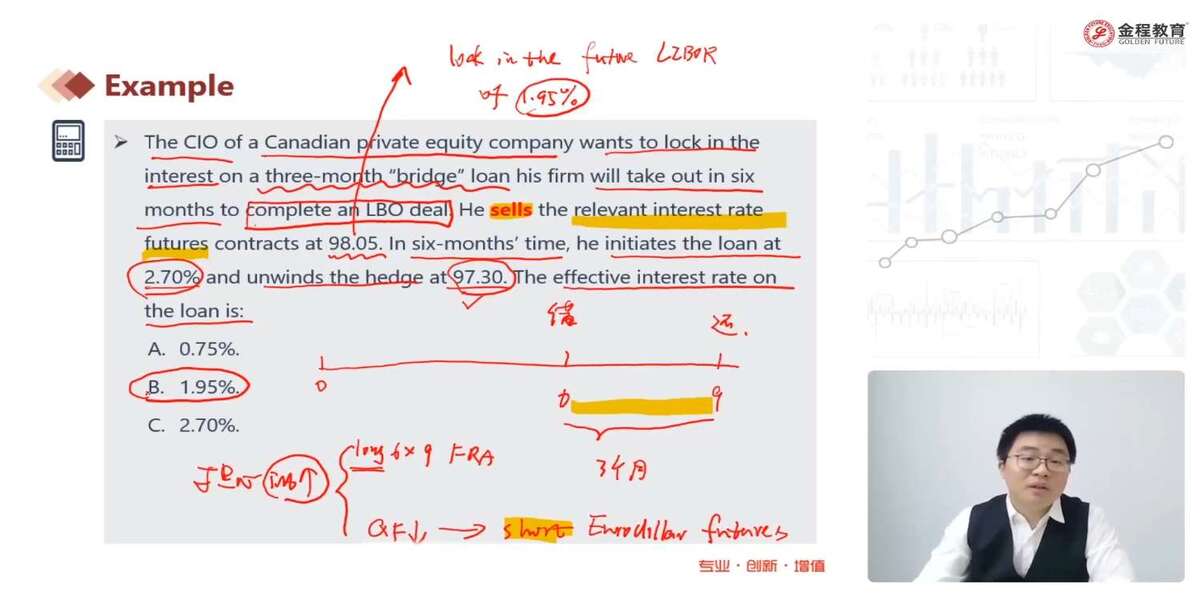 金程教育
GOLDEN FUTURE
lock in the future LIBOR
of 1.95%
Example
➤ The CIO of a Canadian private equity company wants to lock in the
interest on a three-month “bridge” loan his firm will take out in six
months to complete an LBO deal. He sells the relevant interest rate
futures contracts at 98.05. In six-months’ time, he initiates the loan at
2.70% and unwinds the hedge at 97.30. The effective interest rate on
the loan is:
A. 0.75%.
B. 1.95%.
C. 2.70%.
借
还.
0
6
9
3个月
long 6×9 FRA
QF↓ → short Eurodollar futures
专业·创新·增值